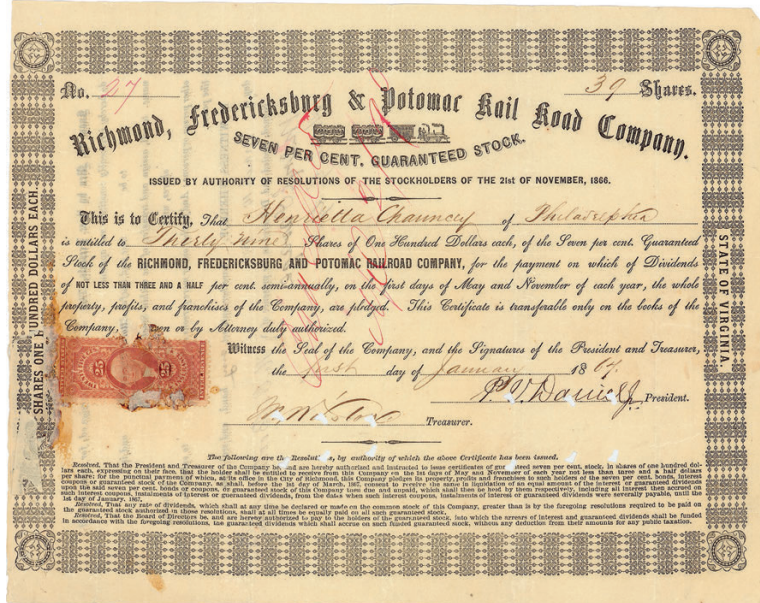 No. 27 39 Shares.
Richmond, Fredericksburg & Potomac Rail Road Company.
SEVEN PER CENT. GUARANTEED STOCK.
ISSUED BY AUTHORITY OF RESOLUTIONS OF THE STOCKHOLDERS OF THE 21st OF NOVEMBER, 1866.
This is to Certify, That Henrietta Chauncey of Philadelphia
is entitled to Thirty nine Shares of One Hundred Dollars each, of the Seven per cent. Guaranteed
Stock of the RICHMOND, FREDERICKSBURG AND POTOMAC RAILROAD COMPANY, for the payment on which of Dividends
of NOT LESS THAN THREE AND A HALF per cent. semi-annually, on the first days of May and November of each year, the whole
property, profits, and franchises of the Company, are pledged. This Certificate is transferable only on the books of the
Company, or by Attorney duly authorized.
Witness the Seal of the Company, and the Signatures of the President and Treasurer,
the first day of January 1867
P. V. Daniel Jr. President.
Treasurer.
SHARES ONE HUNDRED DOLLARS EACH.
STATE OF VIRGINIA.
25 25
The following are the Resolutions, by authority of which the above Certificate has been issued.
Resolved, That the President and Treasurer of the Company be, and are hereby authorized and instructed to issue certificates of guaranteed seven per cent. stock, in shares of one hundred dol-
lars each, expressing on their face, that the holder shall be entitled to receive from this Company on the 1st days of May and November of each year not less than three and a half dollars
per share; for the punctual payment of which, at its office in the City of Richmond, this Company pledges its property, profits and franchises to such holders of the seven per cent. bonds, interest
coupons or guaranteed stock of the Company, as shall, before the 1st day of March, 1867, consent to receive the same in liquidation of an equal amount of the interest or guaranteed dividends
upon the said seven per cent. bonds or coupons, or guaranteed stock of this Company then due and unpaid, which shall then be held by them respectively, including as interest then accrued on
such interest coupons, instalments of interest or guaranteed dividends, from the dates when such interest coupons, instalments of interest or guaranteed dividends were severally payable, until the
1st day of January, 1867.
Resolved, That any rate of dividends, which shall at any time be declared or made on the common stock of this Company, greater than is by the foregoing resolutions required to be paid on
the guaranteed stock authorized in those resolutions, shall at all times be equally paid on all such guaranteed stock.
Resolved, That the Board of Directors be, and are hereby authorized to pay to the holders of the guaranteed stock, into which the arrears of interest and guaranteed dividends shall be funded
in accordance with the foregoing resolutions, the guaranteed dividends which shall accrue on such funded guaranteed stock, without any deduction from their amounts for any public taxation.